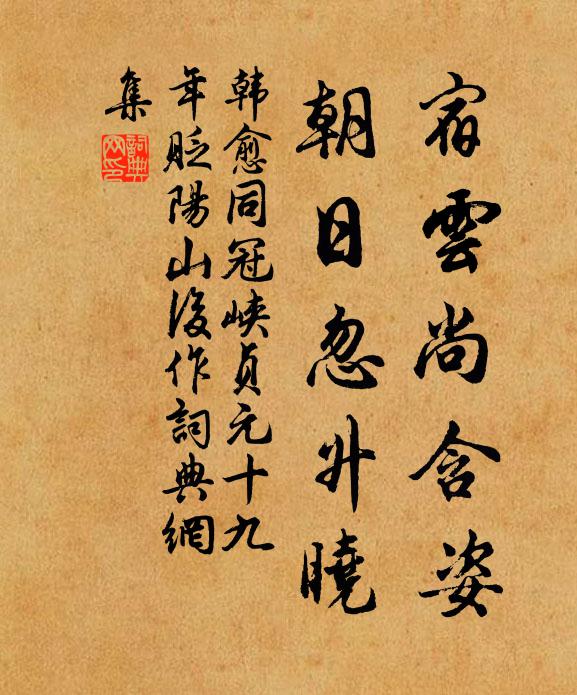 宿雲尚含姿
朝日忽升曉
韓愈同冠峽貞元十九
年貶陽山後作詞典網
集
詞典网印